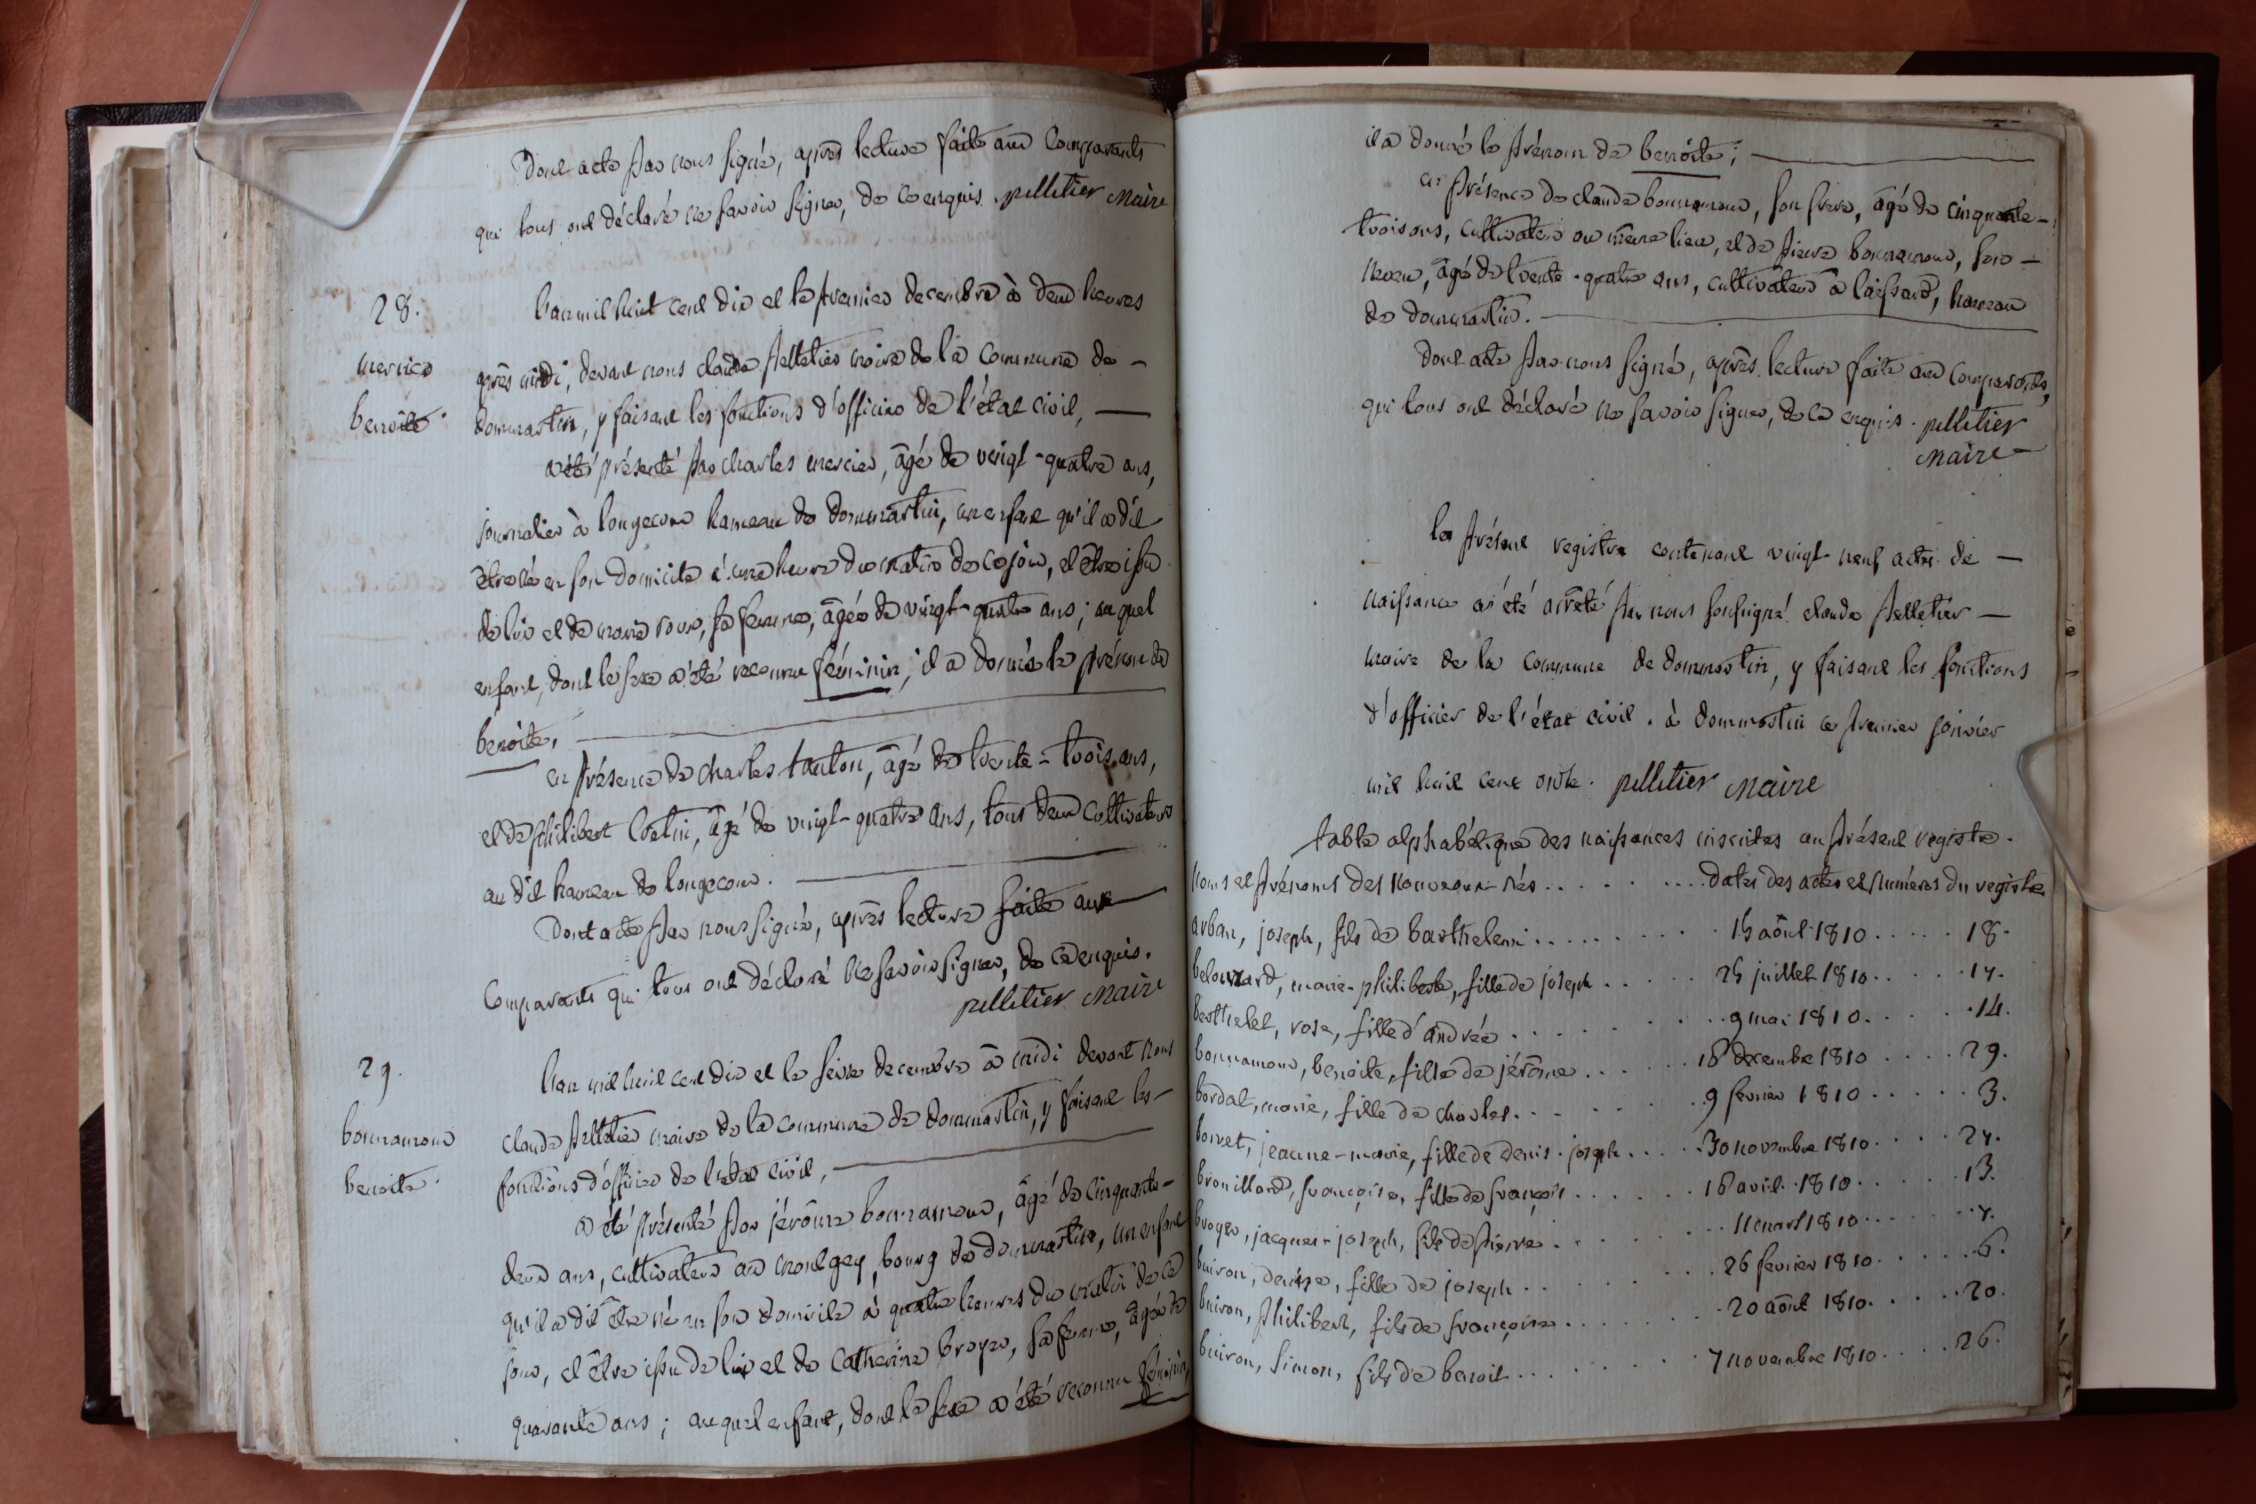 Dont acte par nous signé, après lecture faite aux Comparants
qui tous ont déclaré ne savoir signer, de ce enquis. pelletier Maire
28.
mercier
benoite.
L'an mil huit cent dix et le premier decembre à deux heures
après midi, devant nous claude pelletier maire de la Commune de –
dommartin, y faisant les fonctions d'officier de l'état civil, —
a été présenté par charles mercier, âgé de vingt-quatre ans,
journalier à longecour hameau de dommartin, un enfant qu'il a dit
être né en son domicile à une heure du matin de ce jour, et être issu
de lui et de marie roux, sa femme, âgée de vingt-quatre ans; auquel
enfant, dont le sexe a été reconnu féminin, il a donné le prénom de
benoite, —
en présence de charles tanton, âgé de trente-trois ans,
et de philibert Coetin, âgé de vingt-quatre ans, tous deux cultivateurs
au dit hameau de longecour. —
Dont acte par nous signé, après lecture faite aux
Comparants qui tous ont déclaré ne savoir signer, de ce enquis.
pelletier Maire
29.
bonnamour
benoite.
L'an mil huit cent dix et le seize decembre à midi devant nous
claude pelletier maire de la commune de dommartin, y faisant les –
fonctions d'officier de l'état civil, —
a été présenté par jérôme bonnamour, âgé de cinquante-
deux ans, cultivateur au montgey, bourg de dommartin, un enfant
qu'il a dit être né en son domicile à quatre heures du matin de ce
jour, et être issu de lui et de Catherine broyer, sa femme, âgée de
quarante ans; auquel enfant, dont le sexe a été reconnu féminin,
il a donné le prénom de benoite; —
en présence de claude bonnamour, son frere, âgé de cinquante-
trois ans, cultivateur au même lieu, et de pierre bonnamour, son –
neveu, âgé de trente-quatre ans, cultivateur à laissard, hameau
de dommartin. —
Dont acte par nous signé, après lecture faite aux comparants,
qui tous ont déclaré ne savoir signer, de ce enquis. pelletier
Maire
le présent registre contenant vingt neuf actes de –
naissance a été arrêté par nous soussigné claude pelletier –
maire de la commune de dommartin, y faisant les fonctions
d'officier de l'état civil. à dommartin ce premier janvier
mil huit cent onze. pelletier Maire
table alphabétique des naissances inscrites au présent registre.
noms et prénoms des nouveaux-nés . . . . . dates des actes et numéros du registre
arban, joseph, fils de barthelemi . . . . . 15 août 1810 . . . . . 18.
belouzard, marie-philiberte, fille de joseph . . . . . 25 juillet 1810 . . . . . 17.
berthelet, rose, fille d'andrée . . . . . 9 mai 1810 . . . . . 14.
bonnamour, benoite, fille de jérôme . . . . . 16 decembre 1810 . . . . 29.
bordat, marie, fille de charles . . . . . 9 fevrier 1810 . . . . . 3.
borret, jeanne-marie, fille de denis-joseph . . . . . 30 novembre 1810 . . . . 27.
brouillard, françoise, fille de françois . . . . . 16 avril 1810 . . . . . 13.
broyer, jacques-joseph, fils de pierre . . . . . 11 mars 1810 . . . . . 7.
buiron, denise, fille de joseph . . . . . 26 fevrier 1810 . . . . . 6.
buiron, philibert, fils de françoise . . . . . 20 août 1810 . . . . . 20.
buiron, simon, fils de benoit . . . . . 7 novembre 1810 . . . . 26.